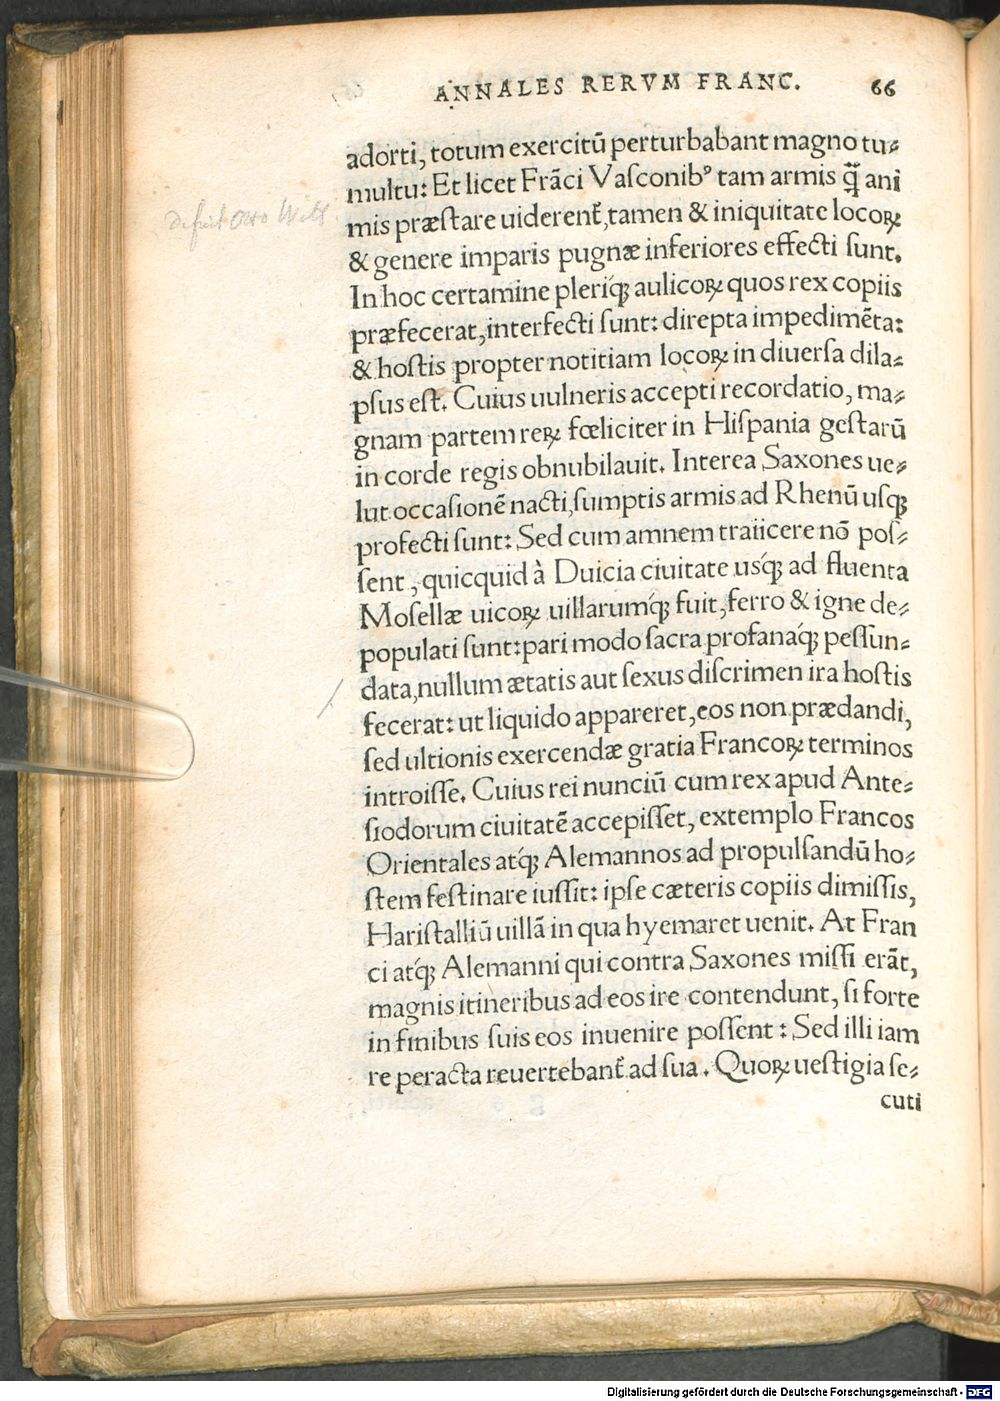 ANNALES RERVM FRANC. 66
adorti, totum exercitū perturbabant magno tu⸗
multu: Et licet Frāci Vasconibꝰ tam armis q̃̃ ani
mis præstare uiderent᷑, tamen & iniquitate locoꝝ
& genere imparis pugnæ inferiores effecti sunt.
In hoc certamine pleriq́ꝫ aulicoꝝ quos rex copiis
præfecerat, interfecti sunt: direpta impedimēta:
& hostis propter notitiam locoꝝ in diuersa dila⸗
psus est. Cuius uulneris accepti recordatio, ma⸗
gnam partem reꝝ fœliciter in Hispania gestarū
in corde regis obnubilauit. Interea Saxones ue⸗
lut occasionē nacti, sumptis armis ad Rhenū usqꝫ
profecti sunt: Sed cum amnem traiicere nō pos⸗
sent, quicquid à Duicia ciuitate usq́ꝫ ad fluenta
Mosellæ uicoꝝ uillarumq́ꝫ fuit, ferro & igne de⸗
populati sunt: pari modo sacra profanaq́ꝫ pessun⸗
data, nullum ætatis aut sexus discrimen ira hostis
fecerat: ut liquido appareret, eos non prædandi,
sed ultionis exercendæ gratia Francoꝝ terminos
introisse. Cuius rei nunciū cum rex apud Ante⸗
siodorum ciuitatē accepisset, extemplo Francos
Orientales atq́ꝫ Alemannos ad propulsandū ho⸗
stem festinare iussit: ipse cæteris copiis dimissis,
Haristalliū uillā in qua hyemaret uenit. At Fran
ci atq́ꝫ Alemanni qui contra Saxones missi erāt,
magnis itineribus ad eos ire contendunt, si forte
in finibus suis eos inuenire possent: Sed illi iam
re peracta reuertebant᷑ ad sua. Quoꝝ uestigia se⸗
cuti
Digitalisierung gefördert durch die Deutsche Forschungsgemeinschaft - DFG